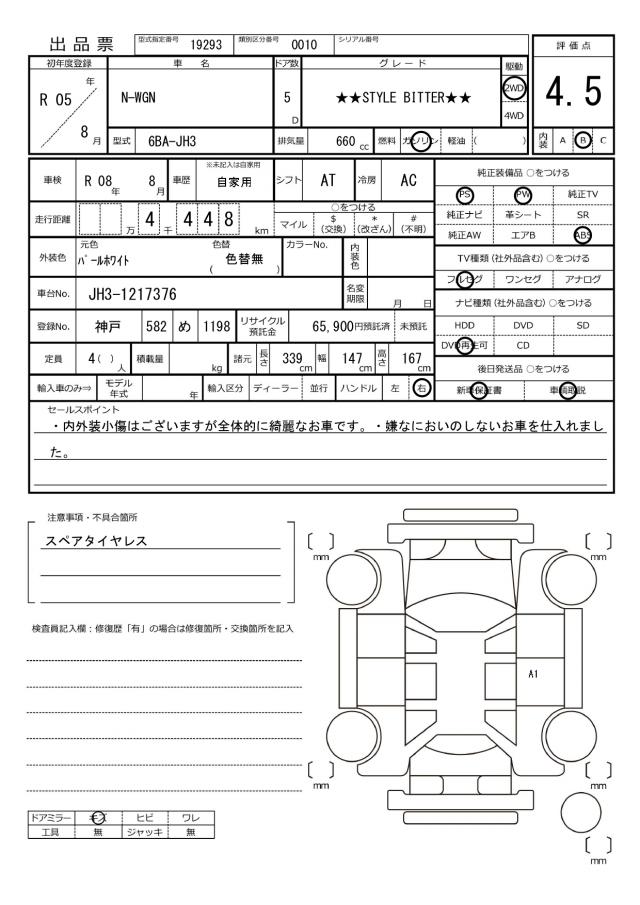 出品票 型式指定番号 19293 類別区分番号 0010 シリアル番号
評価点
4.5
内装 A B C
初年度登録 車名 ドア数 グレード 駆動
R 05 年 8 月 N-WGN 5 D ★★STYLE BITTER★★ 2WD 4WD
型式 6BA-JH3 排気量 660 cc 燃料 ガソリン 軽油 ( )
車検 R 08 年 8 月 車歴 ※未記入は自家用 自家用 シフト AT 冷房 AC
走行距離 万 4 千 4 4 8 km
○をつける
マイル $(交換) *(改ざん) #(不明)
外装色 元色 パールホワイト 色替 ( 色替無 ) カラーNo. 内装色
車台No. JH3-1217376 名変期限 月 日
登録No. 神戸 582 め 1198 リサイクル預託金 65,900円預託済 未預託
定員 4 ( ) 人 積載量 kg 諸元 長さ 339 cm 幅 147 cm 高さ 167 cm
輸入車のみ⇒ モデル年式 年 輸入区分 ディーラー 並行 ハンドル 左 右
純正装備品 ○をつける
PS PW 純正TV
純正ナビ 革シート SR
純正AW エアB ABS
TV種類(社外品含む)○をつける
フルセグ ワンセグ アナログ
ナビ種類(社外品含む)○をつける
HDD DVD SD
DVD再生可 CD
後日発送品 ○をつける
新車保証書 車輌取説
セールスポイント
・内外装小傷はございますが全体的に綺麗なお車です。・嫌なにおいのしないお車を仕入れまし
た。
注意事項・不具合箇所
スペアタイヤレス
検査員記入欄:修復歴「有」の場合は修復箇所・交換箇所を記入
ドアミラー キズ ヒビ ワレ
工具 無 ジャッキ 無
mm
mm
A1
mm
mm
mm